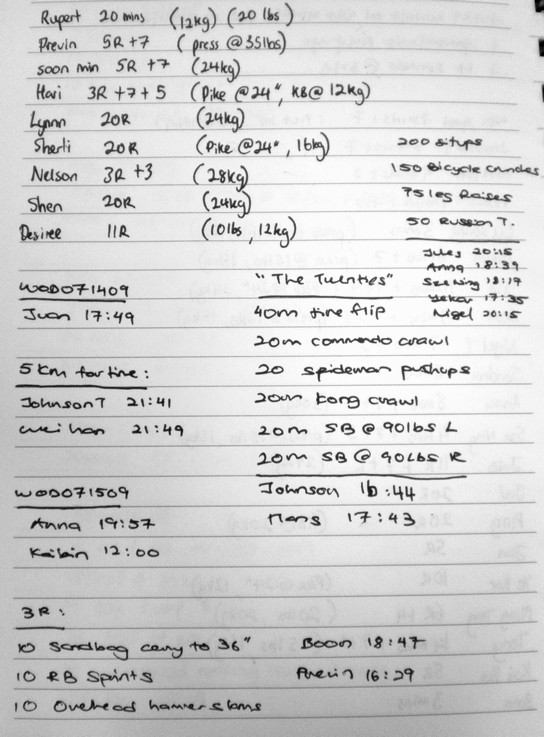 Rupert 20 mins (12kg) (20 lbs)
Previn 5R +7 (press @ 35lbs)
soon min 5R +7 (24kg)
Hari 3R +7 +5 (Pike @ 24", KB @ 12kg)
Lynnn 20R (24kg)
Sherli 20R (Pike @ 24", 16kg)
Nelson 3R +3 (28kg)
Shen 20R (24kg)
Desiree 11R (10lbs, 12kg)
200 situps
150 Bicycle Crunches
75 leg Raises
50 Russian T.
Jules 20:15
Anna 18:39
See King 18:17
Yekai 17:35
Nigel 20:15
WOD071409
Juan 17:49
5km for time:
Johnson T 21:41
Wei han 21:49
WOD071509
Anna 19:57
Kaibin 12:00
"The Twenties"
40m tire flip
20m commando crawl
20 spideman pushups
20m kong crawl
20m SB @ 90lbs L
20m SB @ 90lbs R
Johnson 16:44
Hans 17:43
3R:
10 Sandbag carry to 36"
10 RB Sprints
10 Overhead hamerslams
Boon 18:47
Previn 16:29